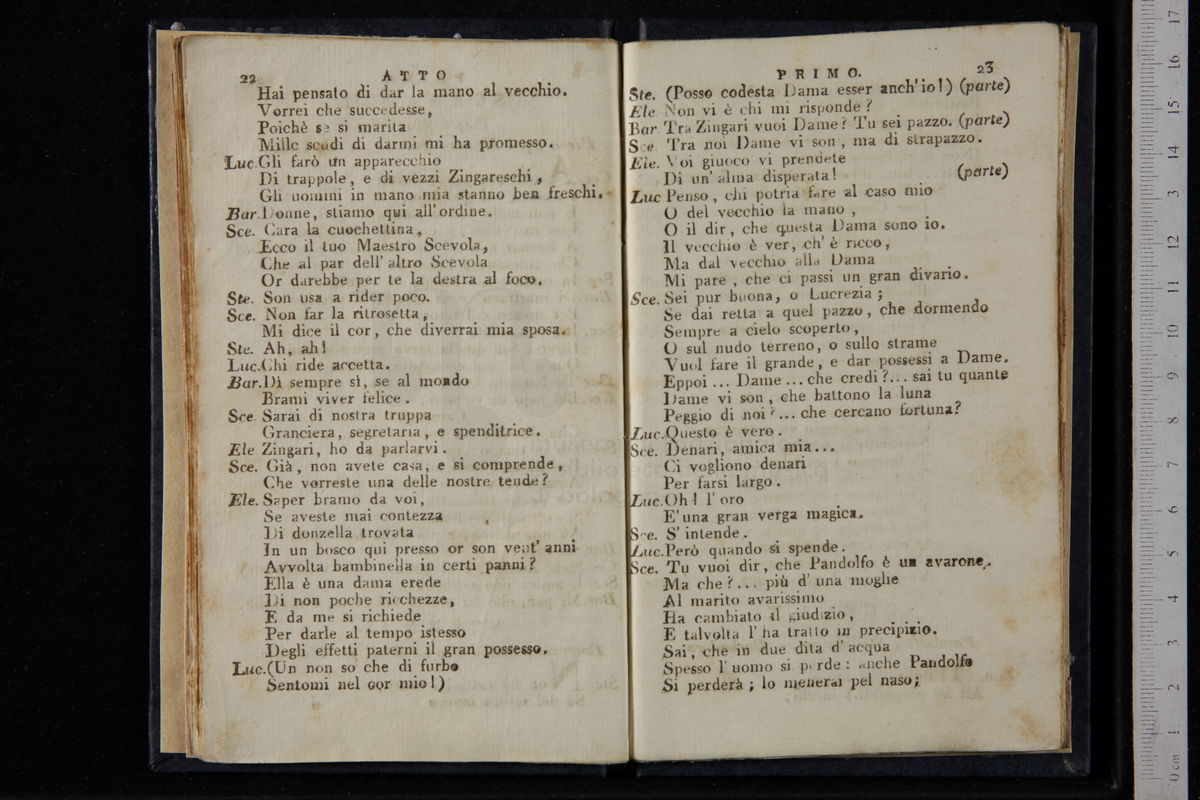 22 ATTO
Hai pensato di dar la mano al vecchio.
Vorrei che succedesse,
Poichè se si marita
Mille scudi di darmi mi ha promesso.
Luc. Gli farò un apparecchio
Di trappole, e di vezzi Zingareschi,
Gli uomini in mano mia stanno ben freschi.
Bar. Donne, stiamo qui all'ordine.
Sce. Cara la cuochettina,
Ecco il tuo Maestro Scevola,
Che al par dell'altro Scevola
Or darebbe per te la destra al foco.
Ste. Son usa a rider poco.
Sce. Non far la ritrosetta,
Mi dice il cor, che diverrai mia sposa.
Ste. Ah, ah!
Luc. Chi ride accetta.
Bar. Dì sempre sì, se al mondo
Brami viver felice.
Sce. Sarai di nostra truppa
Granciera, segretaria, e spenditrice.
Ele. Zingari, ho da parlarvi.
Sce. Già, non avete casa, e si comprende,
Che vorreste una delle nostre tende?
Ele. Saper bramo da voi,
Se aveste mai contezza
Di donzella trovata
In un bosco qui presso or son vent'anni
Avvolta bambinella in certi panni?
Ella è una dama erede
Di non poche ricchezze,
E da me si richiede
Per darle al tempo istesso
Degli effetti paterni il gran possesso.
Luc. (Un non so che di furbo
Sentomi nel cor mio!)
PRIMO. 23
Ste. (Posso codesta Dama esser anch'io!) (parte)
Ele Non vi è chi mi risponde?
Bar. Tra Zingari vuoi Dame? Tu sei pazzo. (parte)
Sce. Tra noi Dame vi son, ma di strapazzo.
Ele. Voi giuoco vi prendete
Di un'alma disperata! (parte)
Luc Penso, chi potria fare al caso mio
O del vecchio la mano,
O il dir, che questa Dama sono io.
Il vecchio è ver, ch'è ricco,
Ma dal vecchio alla Dama
Mi pare, che ci passi un gran divario.
Sce. Sei pur buona, o Lucrezia;
Se dai retta a quel pazzo, che dormendo
Sempre a cielo scoperto,
O sul nudo terreno, o sullo strame
Vuol fare il grande, e dar possessi a Dame.
Eppoi ... Dame ... che credi?... sai tu quante
Dame vi son, che battono la luna
Peggio di noi?... che cercano fortuna?
Luc. Questo è vero.
Sce. Denari, amica mia...
Ci vogliono denari
Per farsi largo.
Luc. Oh! l'oro
E' una gran verga magica.
Sce. S'intende.
Luc. Però quando si spende.
Sce. Tu vuoi dir, che Pandolfo è un avarone.
Ma che?... più d'una moglie
Al marito avarissimo
Ha cambiato il giudizio,
E talvolta l'ha tratto in precipizio.
Sai, che in due dita d'acqua
Spesso l'uomo si perde: anche Pandolfo
Si perderà; lo menerai pel naso;